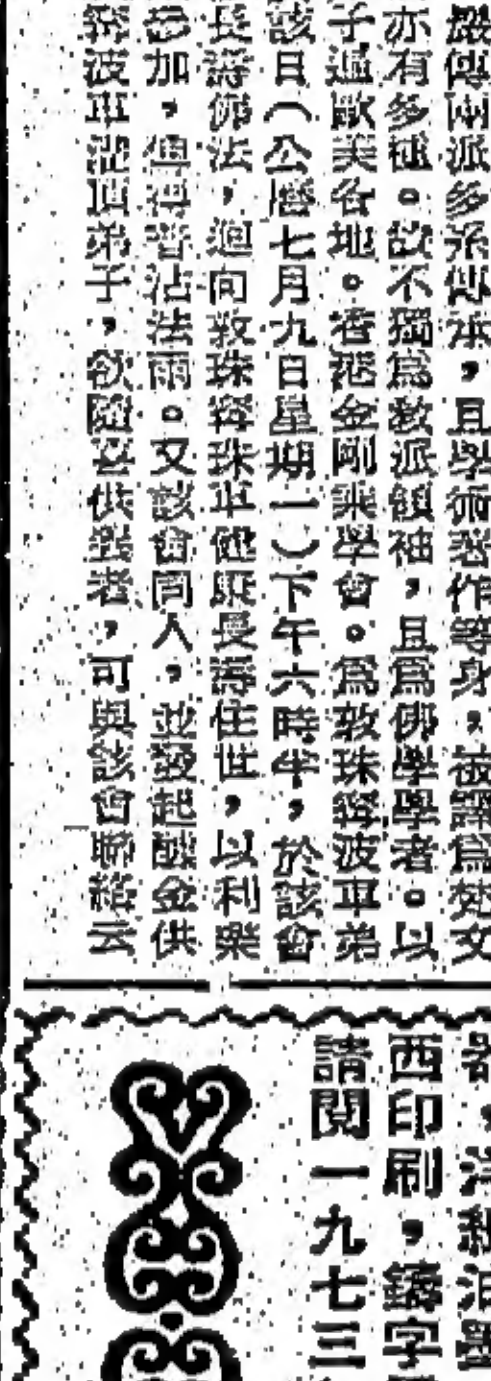 嚴傳兩派多系傳承，且學術著作等身，被譯為梵文
亦有多種。故不獨為教派領袖，且為佛學學者。以
子遍歐美各地。香港金剛乘學會。為敦珠寧波車弟
該日（公曆七月九日星期一）下午六時半，於該會
長壽佛法，迴向敦珠寧波車健康長壽住世，以利樂
參加，俾得普沾法雨。又該會同人，並發起醵金供
寧波車灌頂弟子，欲隨喜供養者，可與該會聯絡云
器，洋紙油墨
西印刷，鑄字
請閱一九七三